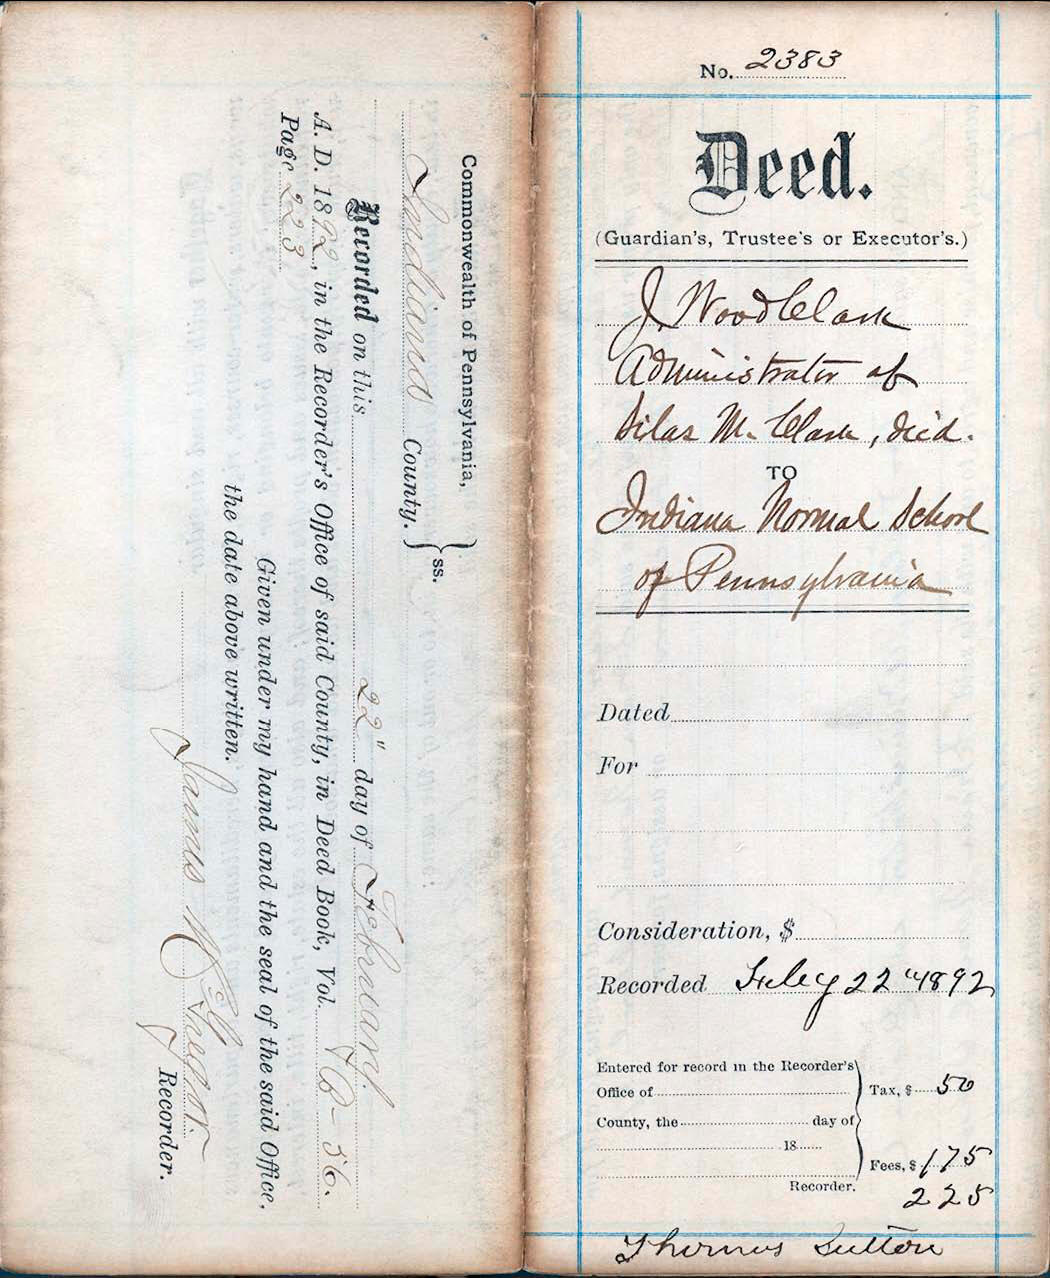 Commonwealth of Pennsylvania,
Indiana County. } ss.
Recorded on this 22" day of February
A. D. 1892, in the Recorder's Office of said County, in Deed Book, Vol. 56.
Page 223
Given under my hand and the seal of the said Office,
the date above written.
James Recorder.
No. 2383
Deed.
(Guardian's, Trustee's or Executor's.)
J. Wood Clark
Administrator of
Silas M. Clark, dec'd.
TO
Indiana Normal School
of Pennsylvania
Dated
For
Consideration, $
Recorded Feby 22" 1892
Entered for record in the Recorder's
Office of
County, the day of
18
Recorder.
Tax, $ 50
Fees, $ 175
225
Thomas Sutton